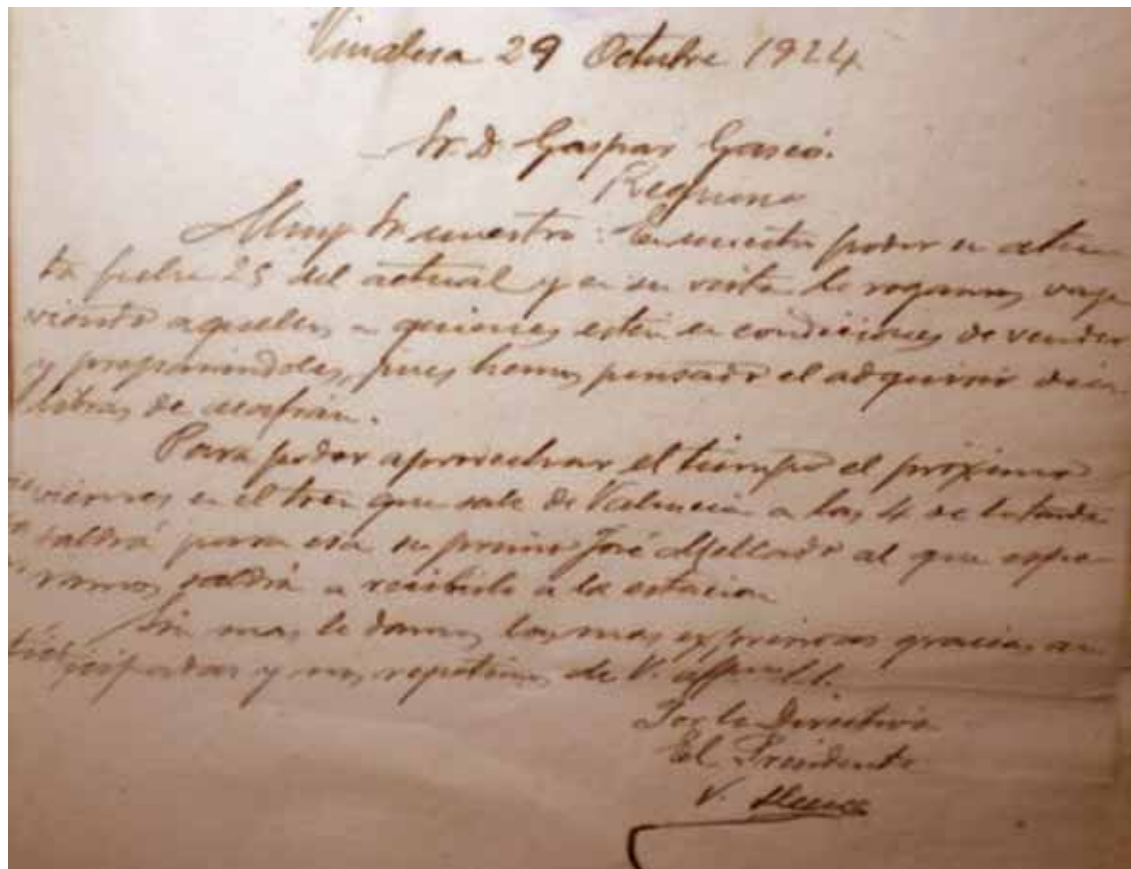 Vinalesa 29 Octubre 1924
Sr. D. Gaspar Gascó.
Requena
Muy Sr. nuestro: En nuestro poder su aten
ta fecha 25 del actual y en su vista le rogamos vaya
viendo a quienes estén en condiciones de vender
y preparandoles, pues hemos pensado el adquirir
libras de azafrán.
Para poder aprovechar el tiempo el próximo
viernes en el tren que sale de Valencia a las 4 de la tarde
saldrá para esa su primo José Mellado al que espe
ramos saldrá a recibirlo a la estacion
Sin mas le damos las mas expresivas gracias an
ticipadas y nos repetimos de V.
Por la Directiva
El Presidente
V.